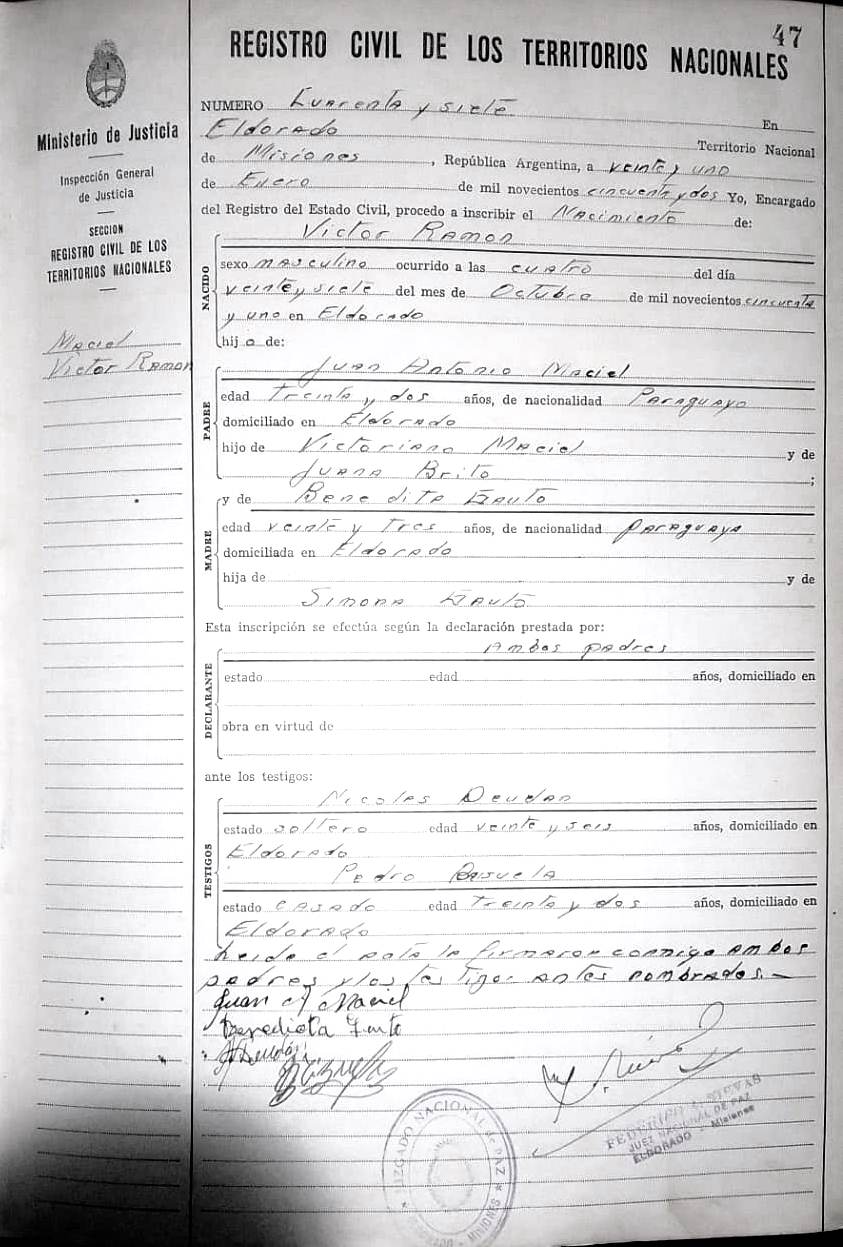 47
REGISTRO CIVIL DE LOS TERRITORIOS NACIONALES
Ministerio de Justicia
Inspección General
de Justicia
SECCION
REGISTRO CIVIL DE LOS
TERRITORIOS NACIONALES
Maciel
Victor Ramon
NUMERO Cuarenta y siete En
Eldorado Territorio Nacional
de Misiones, República Argentina, a veinte y uno
de Enero de mil novecientos cincuenta y dos Yo, Encargado
del Registro del Estado Civil, procedo a inscribir el Nacimiento de:
NACIDO
Victor Ramon
sexo masculino ocurrido a las cuatro del día
veinte y siete del mes de Octubre de mil novecientos cincuenta
y uno en Eldorado
hijo de:
PADRE
Juan Antonio Maciel
edad treinta y dos años, de nacionalidad Paraguayo
domiciliado en Eldorado
hijo de Victoriano Maciel y de
Juana Brito ;
MADRE
y de Benedita
edad veinte y tres años, de nacionalidad paraguaya
domiciliada en Eldorado
hija de y de
Simona
Esta inscripción se efectúa según la declaración prestada por:
DECLARANTE
Ambos padres
estado edad años, domiciliado en
obra en virtud de
ante los testigos:
TESTIGOS
Nicolas
estado soltero edad veinte y seis años, domiciliado en
Eldorado
Pedro
estado casado edad treinta y dos años, domiciliado en
Eldorado
Leida el acta la firmaron conmigo ambos
padres y los testigos antes nombrados.-
Juan A Maciel
Benedicta
JUZGADO NACIONAL de PAZ
ELDORADO - MISIONES
FEDERICO A. NIEVAS
JUEZ NACIONAL DE PAZ
ELDORADO - Misiones